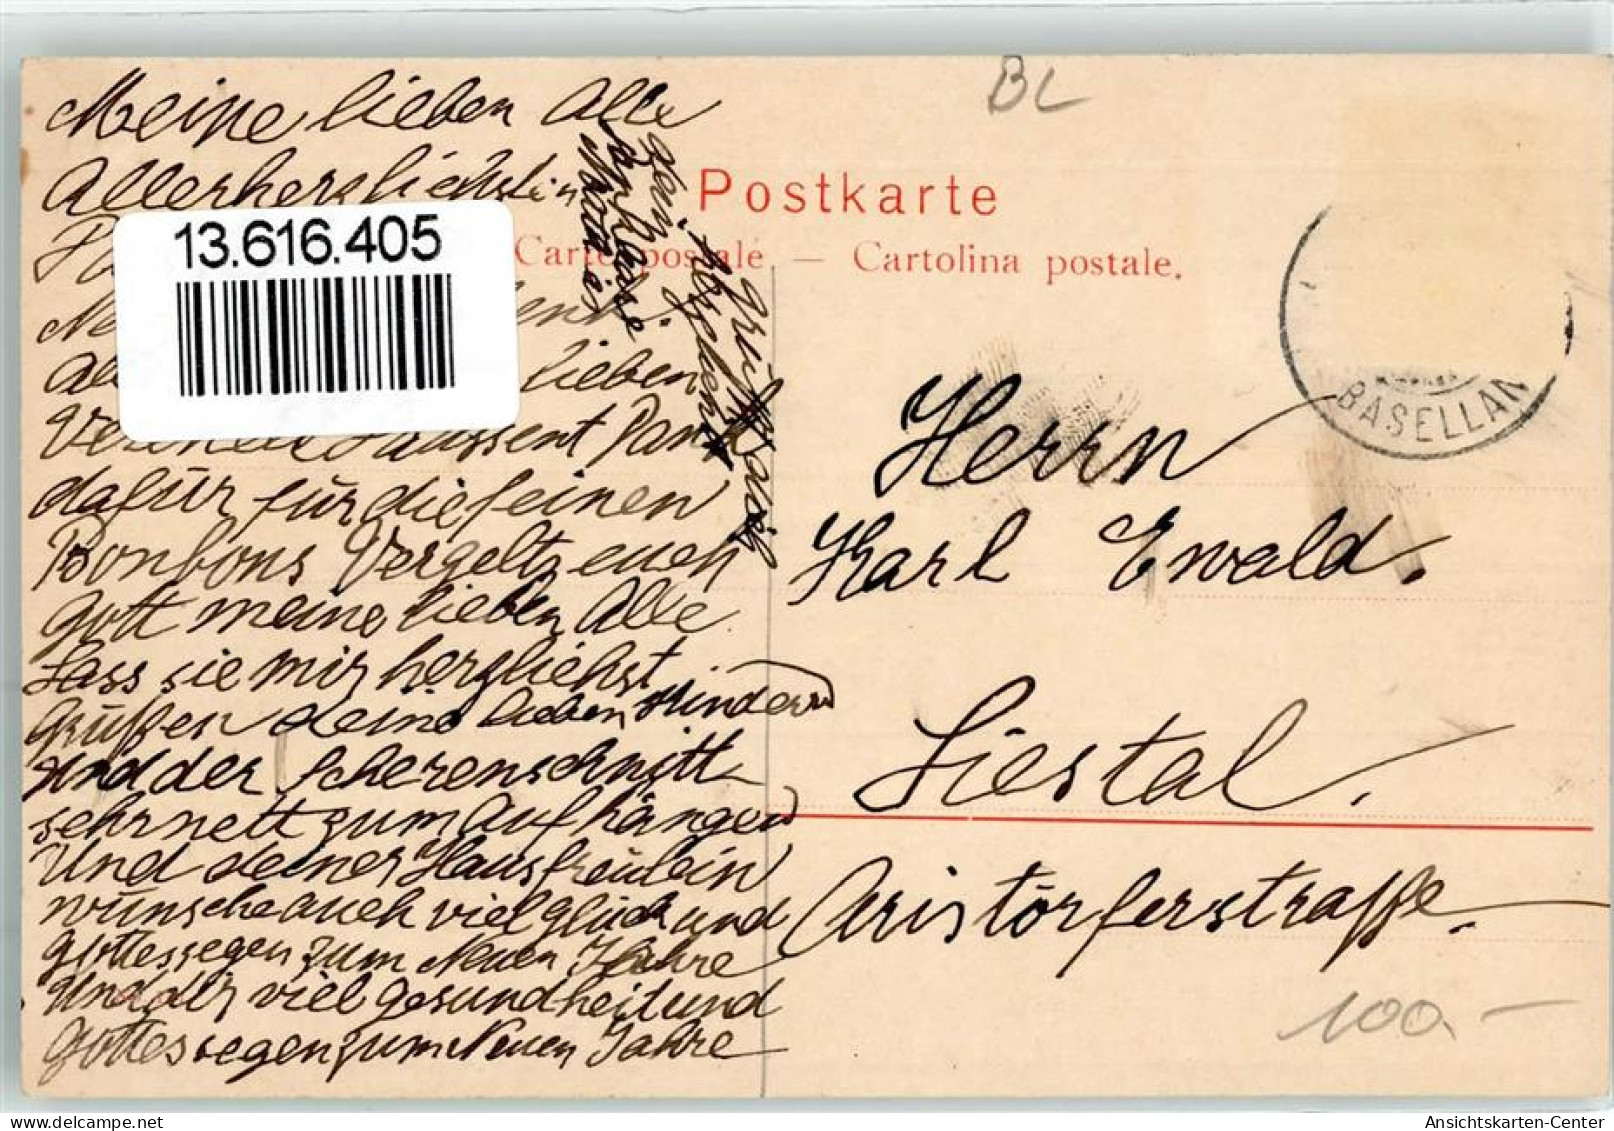 Meine lieben Alle
Allerherslichsten
13.616.405
lieben
Tausent Dank
dafür für die feinen
Bonbons Vergeltz euch
Gott meine lieben Alle
Lass sie mir herzliehst
Grüssen deine lieben Kindern
und der Scherenschnitt
sehr nett zum Aufhängen
Und deiner Hausfreulein
wünsche auch viel Glück und
Gottessegen zum Neuen Jahre
und dir viel gesundheit und
Gottessegen zum Neuen Jahre
BL
Postkarte
Carte postale — Cartolina postale.
BASELLAN
Herrn
Karl Ewald.
Liestal.
Aristörferstrasse.
100.-
Ansichtskarten-Center